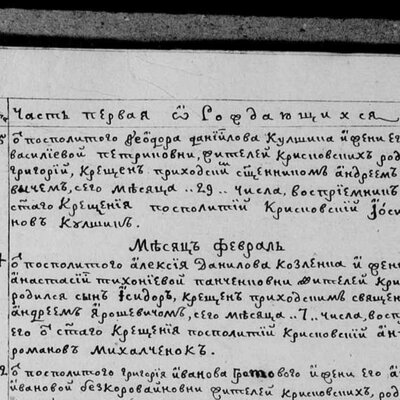 Часть первая ѿ Рождающихся
ѹ посполитого Ѳеодора данійлова Кулшина и жени его
василіевой петриновни, жителей Крисковскихъ род
григорій, Крещенъ приходскимъ сщенникомъ андреемъ
вычемъ, сего месяца 29 числа, воспріемникъ
стаго Крещенія посполитій Крисковскій
новъ Кулшинъ.
Месяцъ февраль
ѹ посполитого алексія Данилова Козленка и жени
анастасіи тихоніевой панченковни жителей Кри
родился сынъ Ісидоръ, крещенъ приходскимъ священ
андреемъ Ярошевичомъ, сего месяца 7 числа, восп
его ѿ стаго Крещенія посполитій Крисковскій
романовъ Михалченокъ.
2 ѹ посполитого григорія йванова громового и жени его
йвановой безкоровайновни жителей Крисковскихъ, род